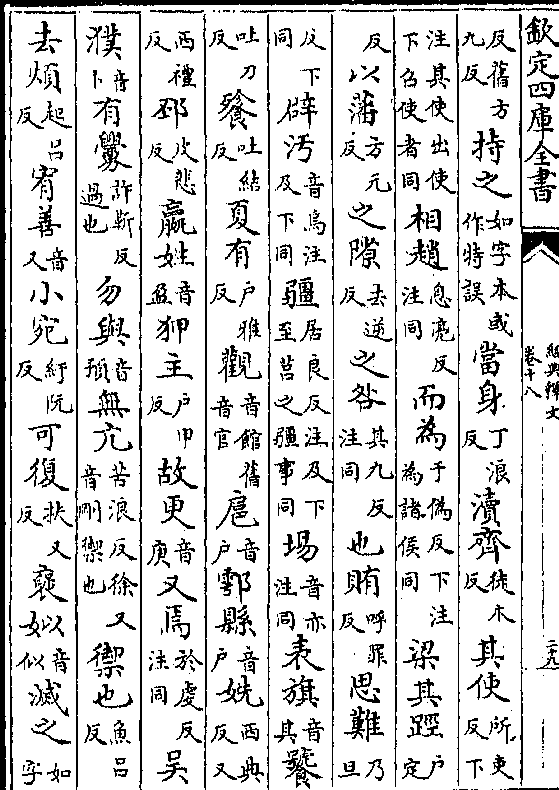 欽定四庫全書
經典釋文
卷十八
二十九
反舊方九反持之如字本或作特誤當身丁浪反瀆齊徒木反其使所吏反下
注其使出使下召使者同相趙息亮反注同而為于偽反下注為諸侯同梁其踁户定
反以藩方元反之隙去逆反之咎其九反注同也賄呼罪反思難乃旦
反下同辟汚音烏注及下同疆居良反注及下至莒之疆事同埸音亦注同表旗音其饕
吐刀反飱吐結反夏有户雅反觀音館舊音官扈音户鄠縣音户姺西典反又
西禮反邳皮悲反嬴姓音盈狎主户甲反故更音庚又焉於虔反注同吴
濮音卜有釁許靳反過也勿與音預無亢苦浪反徐又音剛禦也禦也魚吕反
去煩起吕反宥善音又小宛紆阮反可復扶又反褎姒音似滅之如字